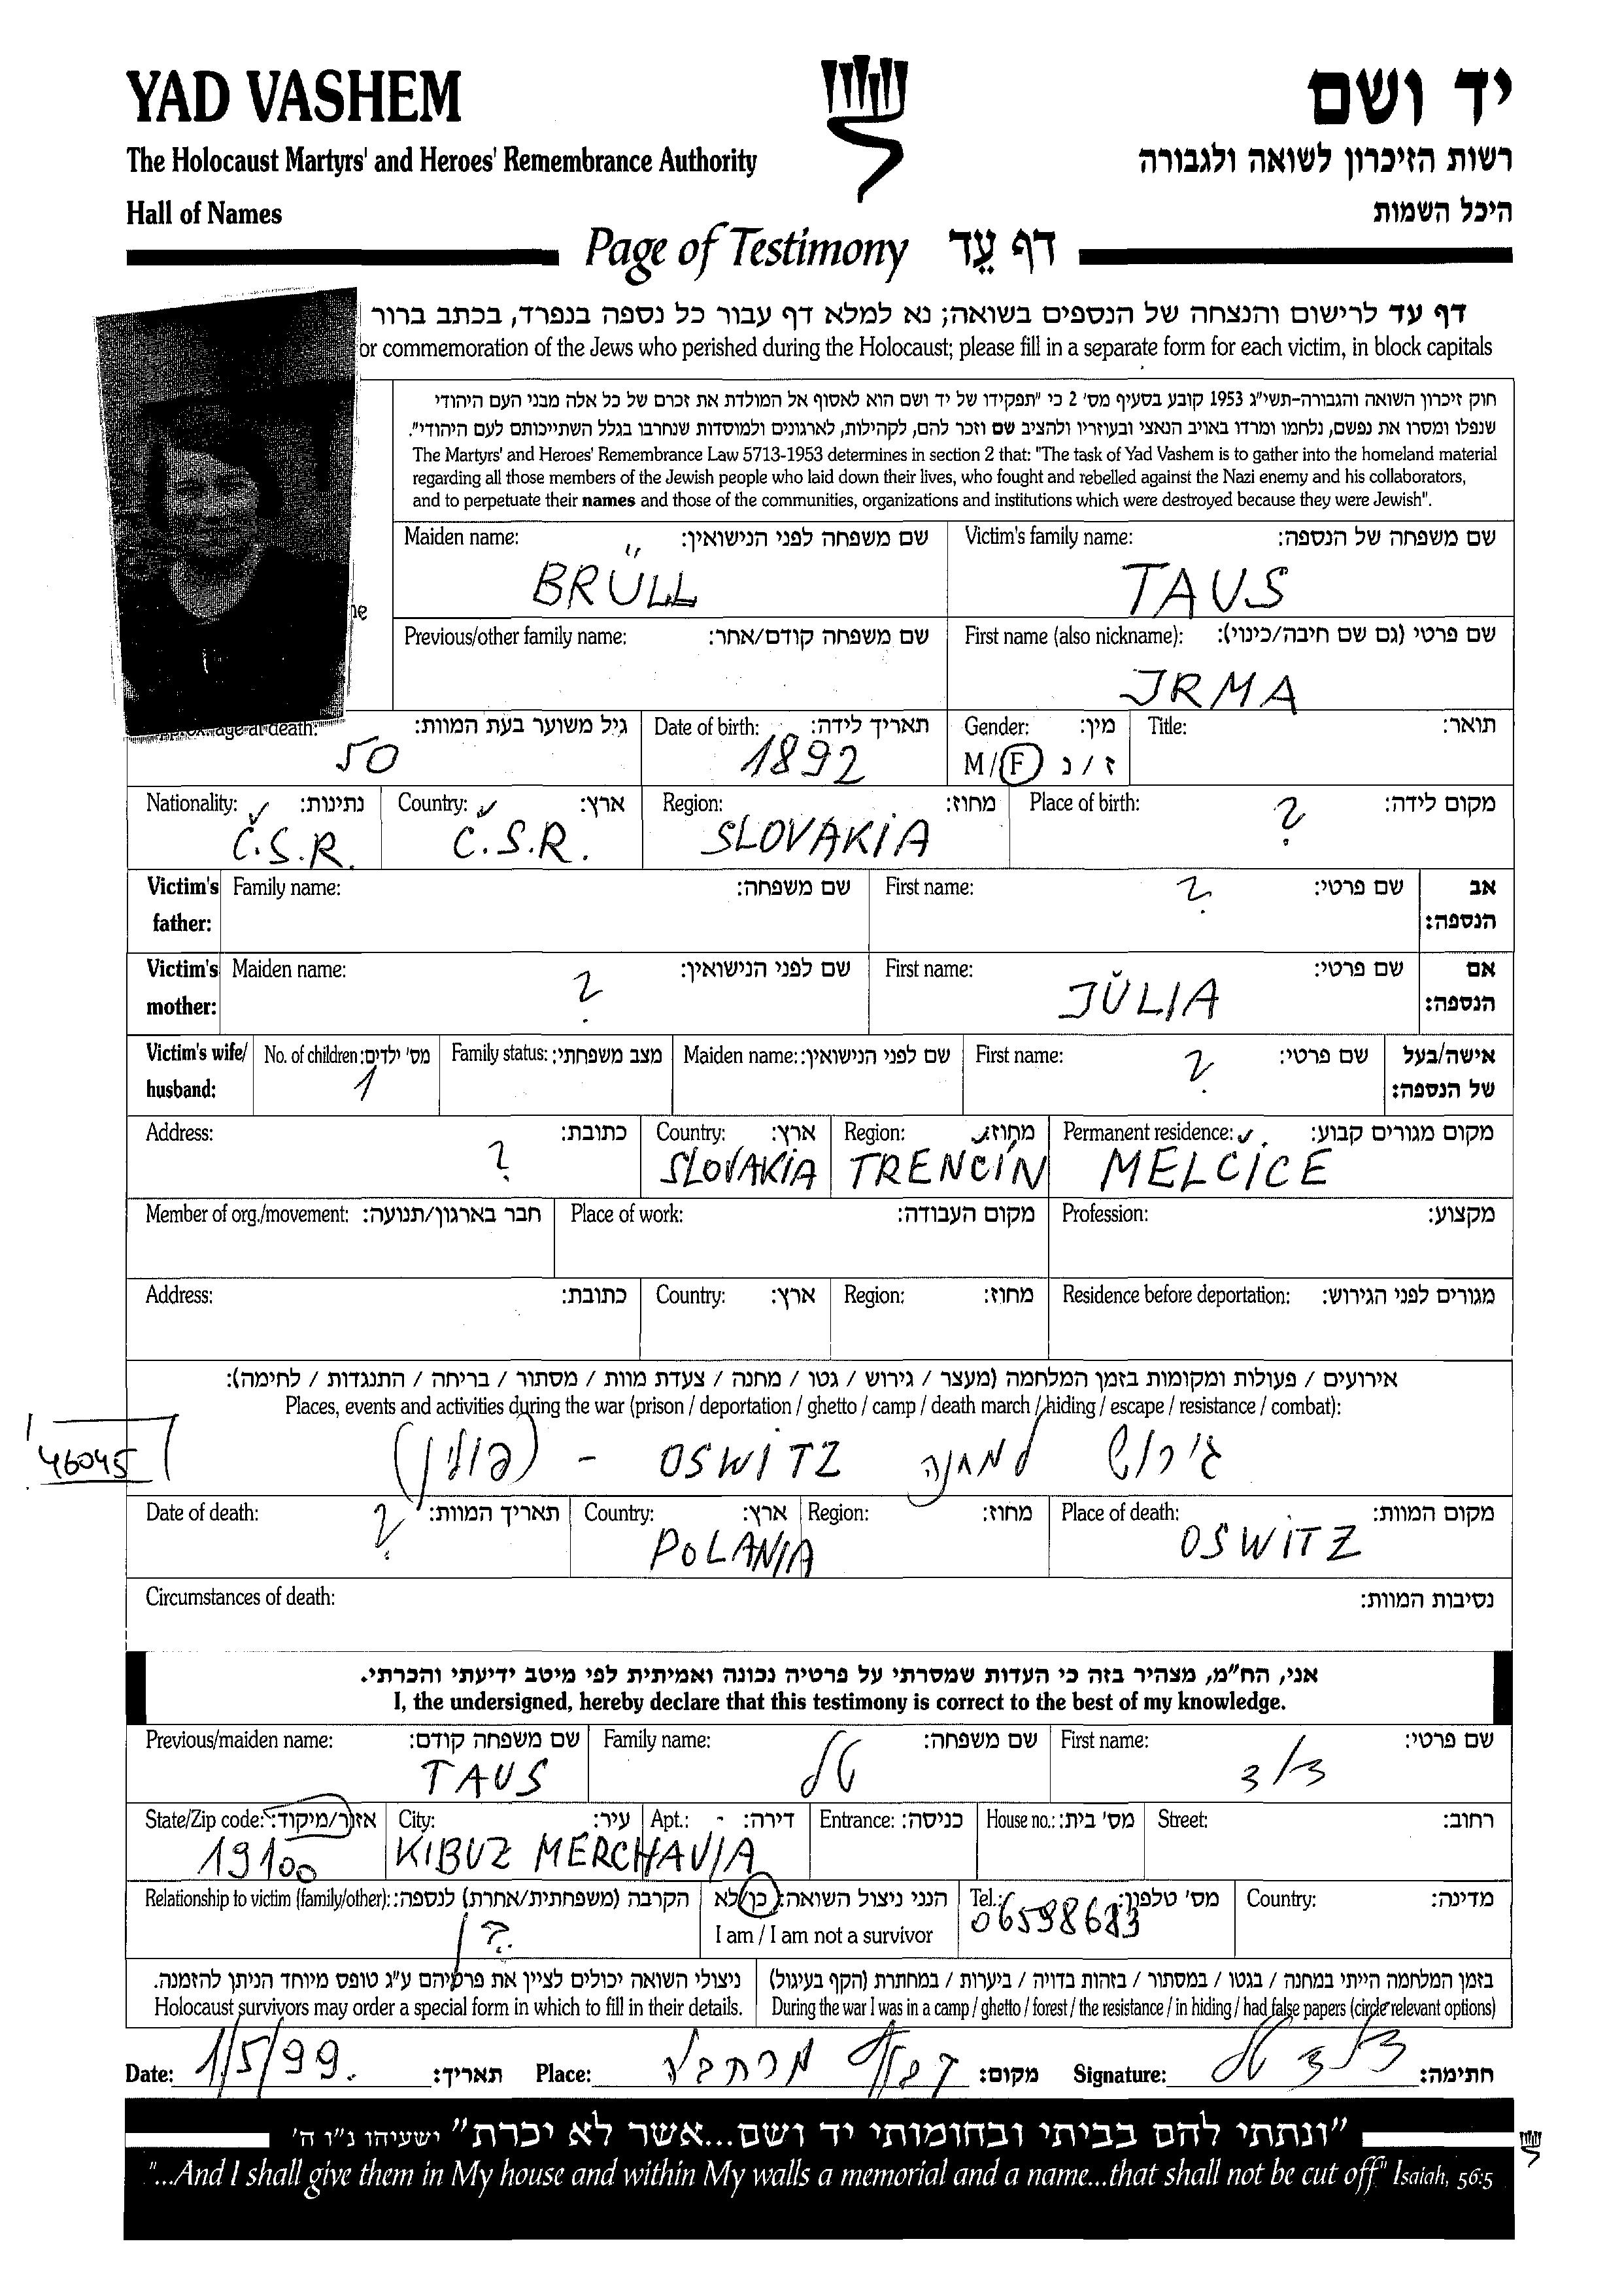 YAD VASHEM
יד ושם
The Holocaust Martyrs' and Heroes' Remembrance Authority
רשות הזיכרון לשואה ולגבורה
Hall of Names
היכל השמות
Page of Testimony דף עֵד
דף עד לרישום והנצחה של הנספים בשואה; נא למלא דף עבור כל נספה בנפרד, בכתב ברור
or commemoration of the Jews who perished during the Holocaust; please fill in a separate form for each victim, in block capitals
חוק זיכרון השואה והגבורה-תשי"ג 1953 קובע בסעיף מס' 2 כי "תפקידו של יד ושם הוא לאסוף אל המולדת את זכרם של כל אלה מבני העם היהודי
שנפלו ומסרו את נפשם, נלחמו ומרדו באויב הנאצי ובעוזריו ולהציב שם וזכר להם, לקהילות, לארגונים ולמוסדות שנחרבו בגלל השתייכותם לעם היהודי".
The Martyrs' and Heroes' Remembrance Law 5713-1953 determines in section 2 that: "The task of Yad Vashem is to gather into the homeland material
regarding all those members of the Jewish people who laid down their lives, who fought and rebelled against the Nazi enemy and his collaborators,
and to perpetuate their names and those of the communities, organizations and institutions which were destroyed because they were Jewish".
Maiden name: שם משפחה לפני הנישואין: Victim's family name: שם משפחה של הנספה:
BRÜLL TAUS
Previous/other family name: שם משפחה קודם/אחר: First name (also nickname): שם פרטי (גם שם חיבה/כינוי):
IRMA
age at death: גיל משוער בעת המוות: Date of birth: תאריך לידה: Gender: מין: Title: תואר:
50 1892 M / F ז / נ
Nationality: נתינות: Country: ארץ: Region: מחוז: Place of birth: מקום לידה:
Č.S.R. Č.S.R. SLOVAKIA ?
Victim's Family name: שם משפחה: First name: ? שם פרטי: אב
father: הנספה:
Victim's Maiden name: ? שם לפני הנישואין: First name: שם פרטי: אם
mother: JÚLIA הנספה:
Victim's wife/ No. of children: מס' ילדים: Family status: מצב משפחתי: Maiden name: שם לפני הנישואין: First name: ? שם פרטי: אישה/בעל
husband: 1 של הנספה:
Address: כתובת: Country: ארץ: Region: מחוז: Permanent residence: מקום מגורים קבוע:
? SLOVAKIA TRENCIN MELCICE
Member of org./movement: חבר בארגון/תנועה: Place of work: מקום העבודה: Profession: מקצוע:
Address: כתובת: Country: ארץ: Region: מחוז: Residence before deportation: מגורים לפני הגירוש:
אירועים / פעולות ומקומות בזמן המלחמה (מעצר / גירוש / גטו / מחנה / צעדת מוות / מסתור / בריחה / התנגדות / לחימה):
Places, events and activities during the war (prison / deportation / ghetto / camp / death march / hiding / escape / resistance / combat):
גירוש למחנה OSWITZ - (פולין)
46045
Date of death: תאריך המוות: Country: ארץ: Region: מחוז: Place of death: מקום המוות:
? POLANIA OSWITZ
Circumstances of death: נסיבות המוות:
אני, הח"מ, מצהיר בזה כי העדות שמסרתי על פרטיה נכונה ואמיתית לפי מיטב ידיעתי והכרתי.
I, the undersigned, hereby declare that this testimony is correct to the best of my knowledge.
Previous/maiden name: שם משפחה קודם: Family name: שם משפחה: First name: שם פרטי:
TAUS טל
State/Zip code: אזור/מיקוד: City: עיר: Apt.: דירה: Entrance: כניסה: House no.: מס' בית: Street: רחוב:
19100 KIBUZ MERCHAVIA
Relationship to victim (family/other): הקרבה (משפחתית/אחרת) לנספה: הנני ניצול השואה: כן/לא Tel.: מס' טלפון: Country: מדינה:
I am / I am not a survivor
06598683
ניצולי השואה יכולים לציין את פרטיהם ע"ג טופס מיוחד הניתן להזמנה. בזמן המלחמה הייתי במחנה / בגטו / במסתור / בזהות בדויה / ביערות / במחתרת (הקף בעיגול)
Holocaust survivors may order a special form in which to fill in their details. During the war I was in a camp / ghetto / forest / the resistance / in hiding / had false papers (circle relevant options)
Date: 1/5/99. תאריך: Place: מרחביה מקום: Signature: טל חתימה:
"ונתתי להם בביתי ובחומותי יד ושם...אשר לא יכרת" ישעיהו נ"ו ה'
"...And I shall give them in My house and within My walls a memorial and a name...that shall not be cut off" Isaiah, 56:5